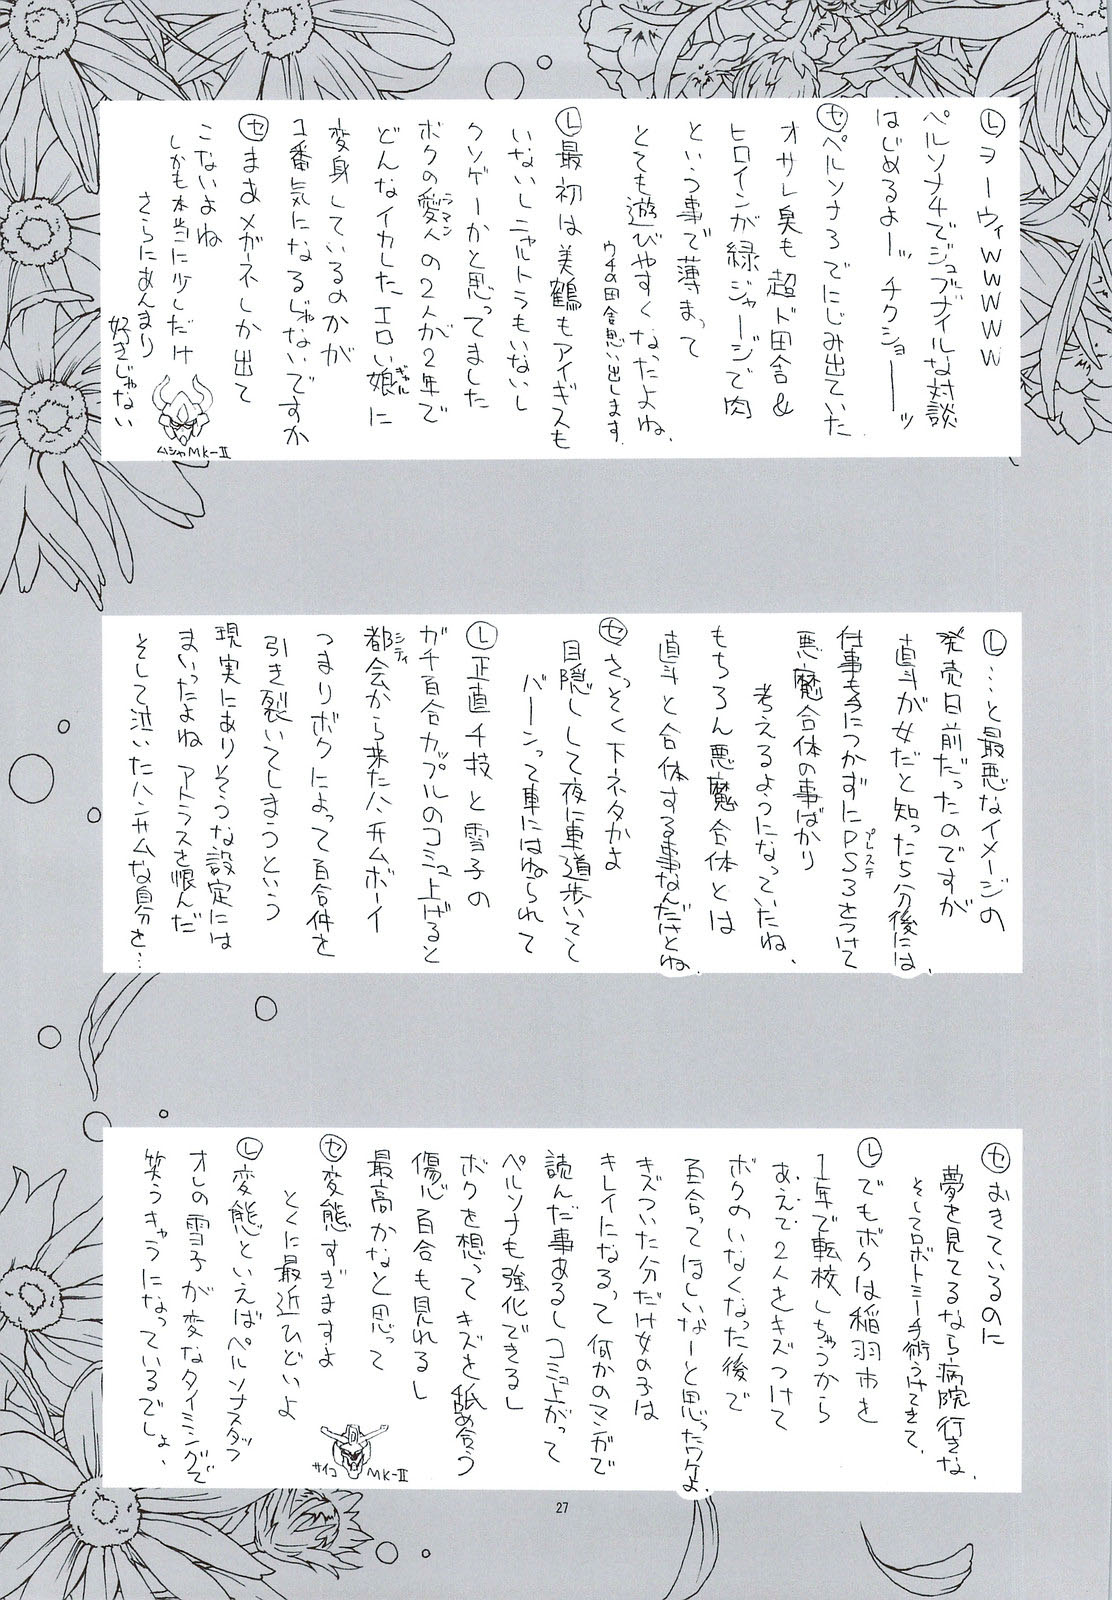 Ⓛヲーウィwwwww
ペルソナ4でジュブナイルな対談
はじめるよーッ チクショーーッ
㋝ペルソナ3でにじみ出ていた
オサレ臭も超ド田舎&
ヒロインが緑ジャージで肉
という事で薄まって
とても遊びやすくなったよね、
ウチの田舎思い出します
Ⓛ最初は美鶴もアイギスも
いないしニャルトラもいないし
クソゲーかと思ってました
ボクの愛人の2人が2年で
ラマン
どんなイカした エロい娘に
ギャル
変身しているのかが
1番気になるじゃないですか
㋝まあメガーネしか出て
こないよね
しかも本当に少しだけ
さらにあんまり
好きじゃない
ムシャMK-Ⅱ
Ⓛ…と最悪なイメージの
発売日前だったのですが
直斗が女だと知った5分後には、
仕事も手につかずにPS3をつけて
プレステ
悪魔合体の事ばかり
考えるようになっていたね、
もちろん悪魔合体とは
直斗と合体する事なんだけどね、
㋝さっそく下ネタかよ
目隠しして夜に車道歩いてて
バーンって車にはねられて
Ⓛ正直千枝と雪子の
ガチ百合カップルのコミュ上げると
都会から来たハンサムボーイ
シティ
つまりボクによって百合件を
引き裂いてしまうという
現実にありそうな設定には
まいったよね アトラスを恨んだ
そして泣いたハンサムな自分を…
㋝おきているのに
夢を見てるなら病院行きな、
そしてロボトミー手術うけてきて、
Ⓛでもボクは稲羽市を
1年で転校しちゃうから
あえて2人をキズつけて
ボクのいなくなった後で
百合ってほしいなーと思ったワケよ、
キズついた分だけ女の子は
キレイになるって何かのマンガで
読んだ事あるしコミュ上がって
ペルソナも強化できるし
ボクを想ってキズを舐め合う
傷心百合も見れるし
最高かなと思って
㋝変態すぎますよ
とくに最近ひどいよ
サイコ MK-Ⅱ
Ⓛ変態といえばペルソナスタッフ
オレの雪子が変なタイミングで
笑うキャラになっているでしょ、
27